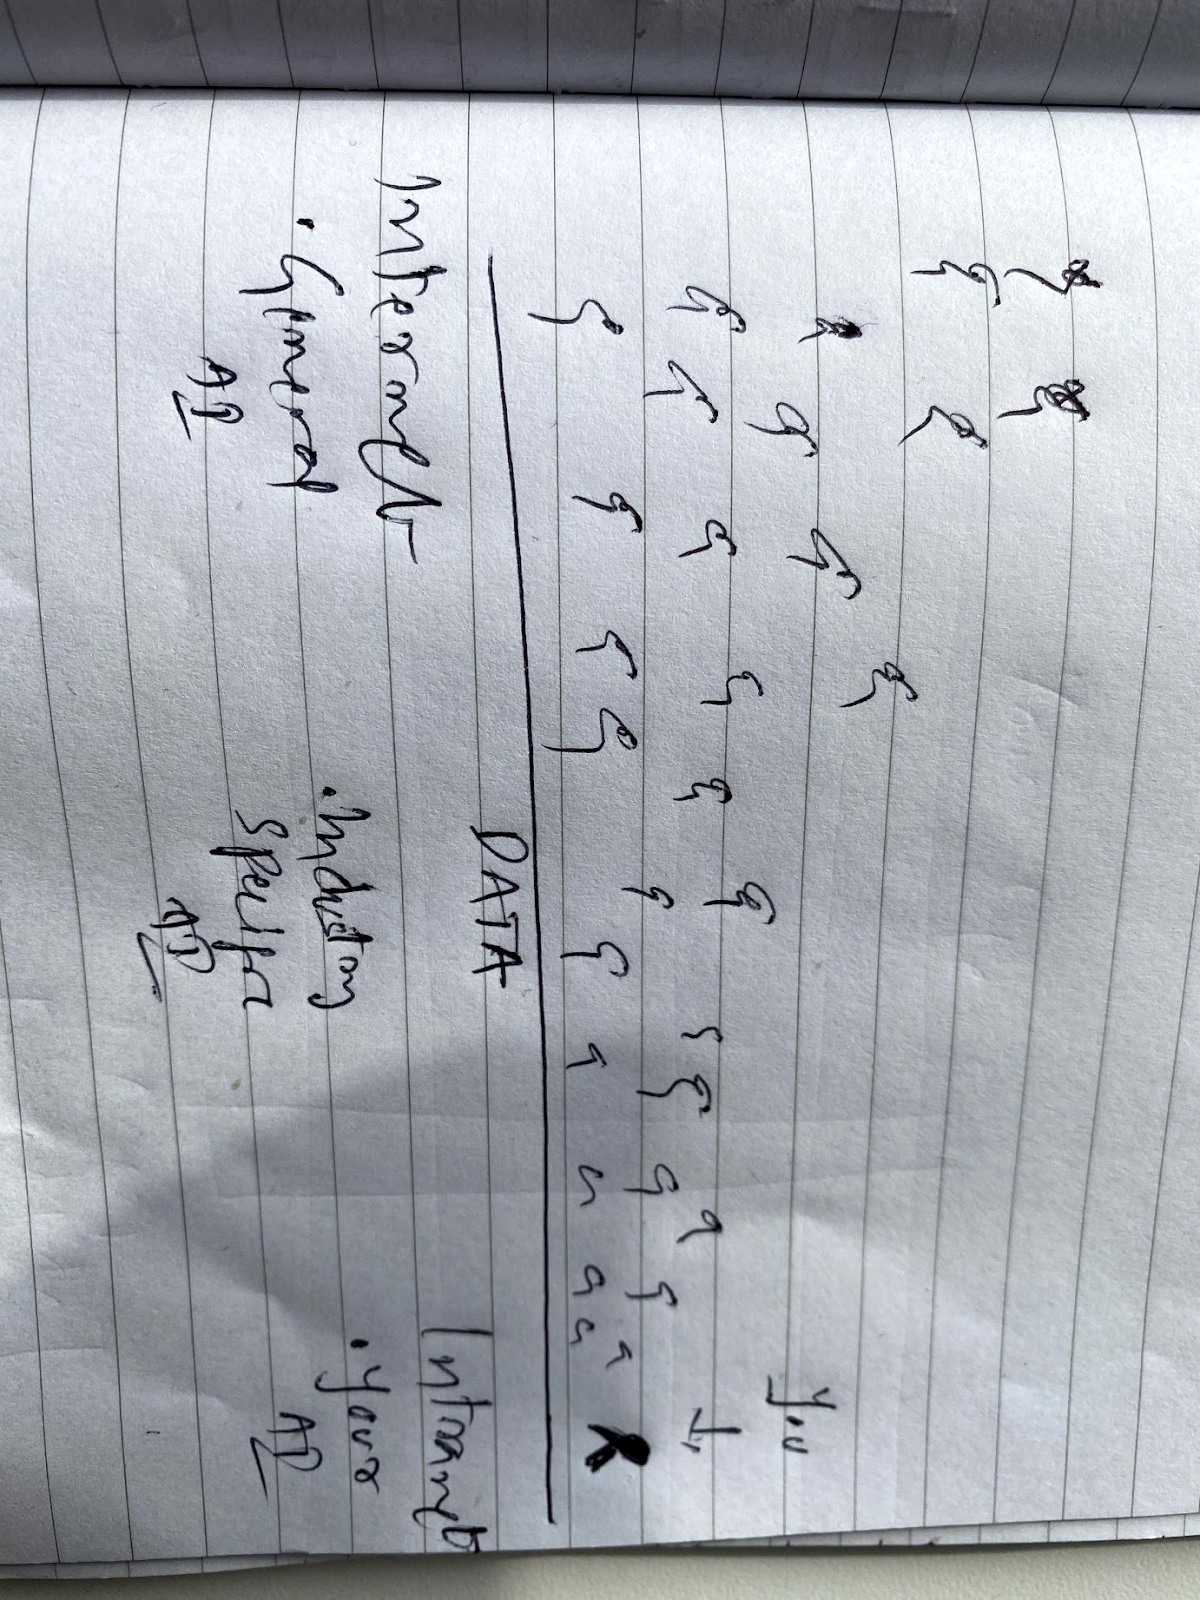 You
DATA
Internet
Intranet
. General
. Industry
. Your
Specific
AI
AI
AI